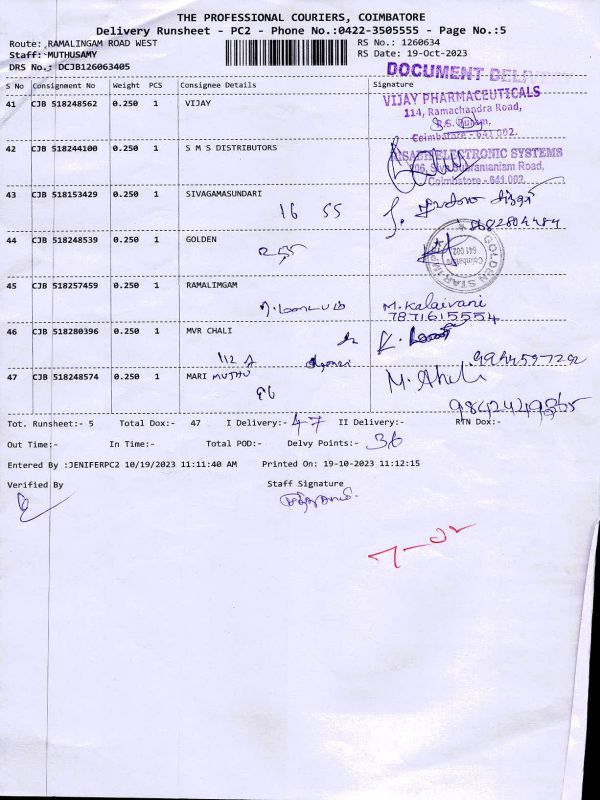 THE PROFESSIONAL COURIERS, COIMBATORE
Delivery Runsheet - PC2 - Phone No.:0422-3505555 - Page No.:5
Route: RAMALINGAM ROAD WEST RS No.: 1260634
Staff: MUTHUSAMY RS Date: 19-Oct-2023
DRS No.: DCJB126063405
DOCUMENT
S No Consignment No Weight PCS Consignee Details Signature
41 CJB 518248562 0.250 1 VIJAY
VIJAY PHARMACEUTICALS
114, Ramachandra Road,
Coimbatore - 641 002.
42 CJB 518244100 0.250 1 S M S DISTRIBUTORS
ELECTRONIC SYSTEMS
Road,
Coimbatore - 641 002
43 CJB 518153429 0.250 1 SIVAGAMASUNDARI
16 55
44 CJB 518248539 0.250 1 GOLDEN
GOLDEN STAR
Coimbatore
641 002
45 CJB 518257459 0.250 1 RAMALIMGAM
M. Kalaivani
7871615554
46 CJB 518280396 0.250 1 MVR CHALI
112
9944597292
47 CJB 518248574 0.250 1 MARI MUTHU
96
Tot. Runsheet:- 5 Total Dox:- 47 I Delivery:- 47 II Delivery:- RTN Dox:-
Out Time:- In Time:- Total POD:- Delvy Points:- 36
Entered By :JENIFERPC2 10/19/2023 11:11:40 AM Printed On: 19-10-2023 11:12:15
Verified By Staff Signature